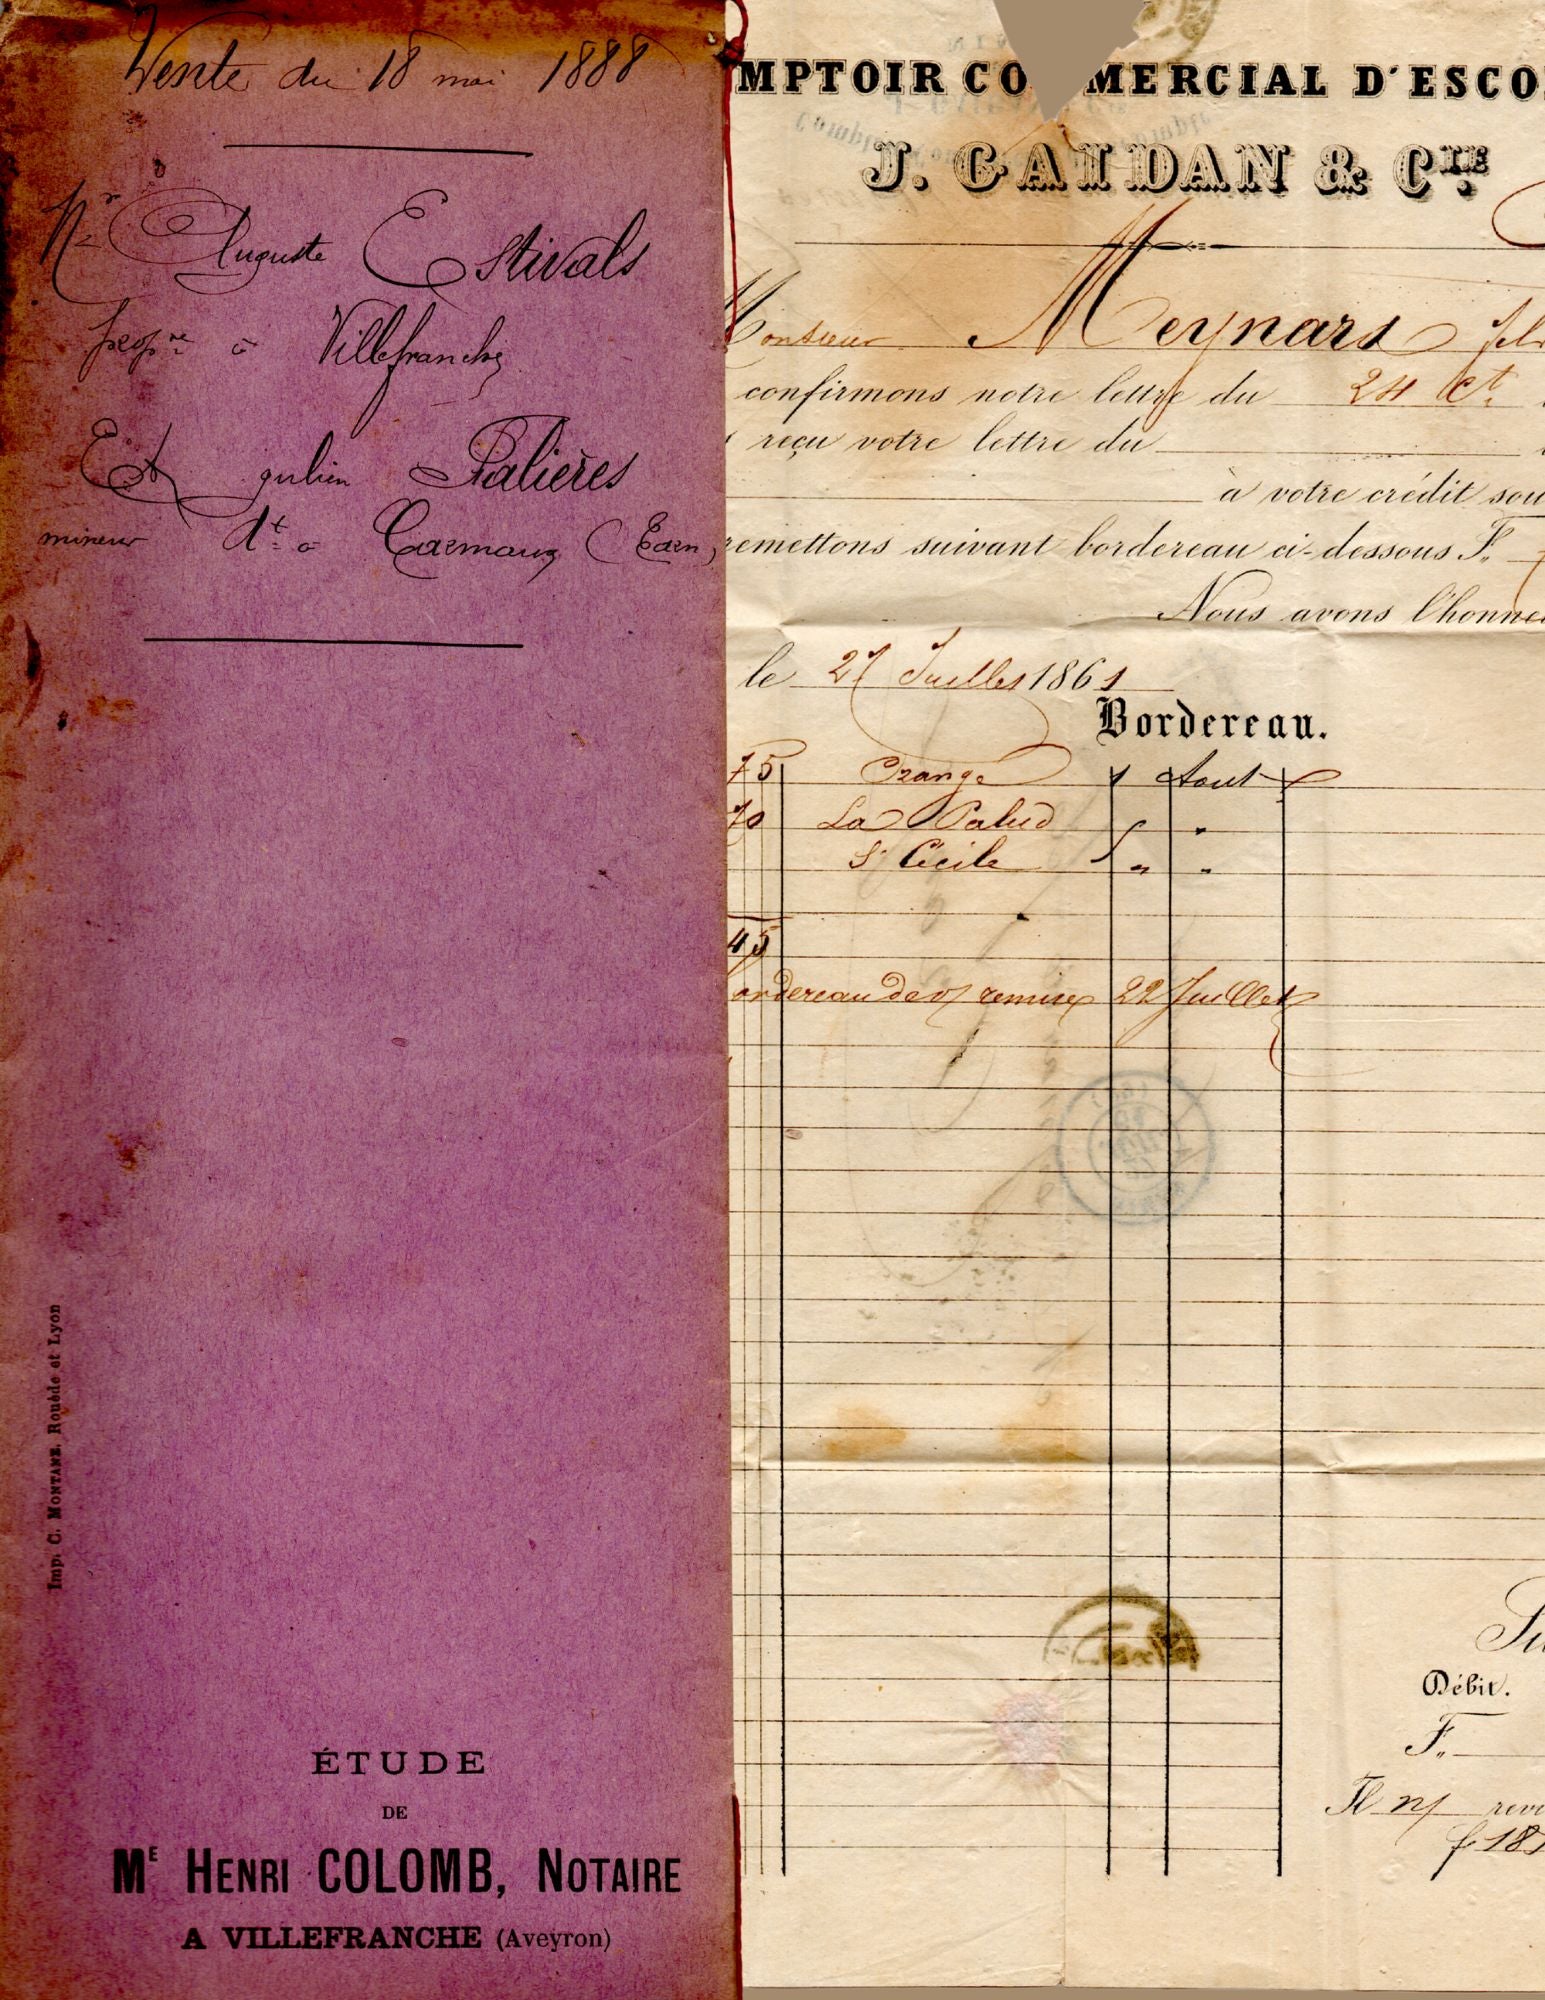 Vente du 18 mai 1888
Mr Auguste Estivals
propre à Villefranche
Et Julien Palières
mineur dt à Carmaux (Tarn)
Imp. C. MONTANE. Rouède et Lyon
ÉTUDE
DE
ME HENRI COLOMB, NOTAIRE
A VILLEFRANCHE (Aveyron)
MPTOIR COMMERCIAL D'ESCO
J. GAIDAN & CIE
Monsieur Meynard
confirmons notre lettre du 24 ct.
reçu votre lettre du
à votre crédit sou
remettons suivant bordereau ci-dessous F.
Nous avons l'honne
le 27 Juillet 1861
Bordereau.
75 Orange 1 Aout
70 La Palud " "
St Cécile " "
45
ordereau de v/ remise 22 Juillet
Débit.
F.
f 181